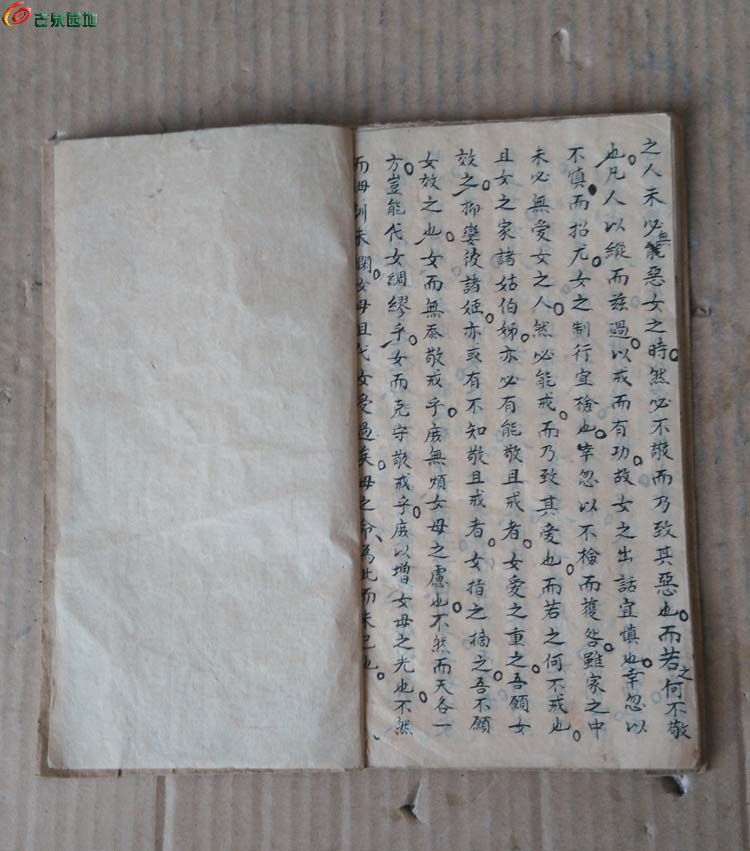 古泉园地
之人未必無能惡女之時然必不敬而乃致其惡也而若之何不敬
也凡人以縱而茲過以戒而有功故女之出話宜慎也幸忽以
不慎而招尤女之制行宜檢也幸忽以不檢而獲咎雖家之中
未必無愛女之人然必能戒而乃致其愛也而若之何不戒也
且女之家諸姑伯姊亦必有能敬且戒者女愛之重之吾願女
效之抑孌彼諸姬亦或有不知敬且戒者女指之摘之吾不願
女效之也女而無忝敬戒乎庶無煩女母之慮也不然而天各一
方豈能代女綢繆乎女而克守敬戒乎庶以增女母之光也不然
而母訓未閑女母且代女受過矣母之命為此而未已也